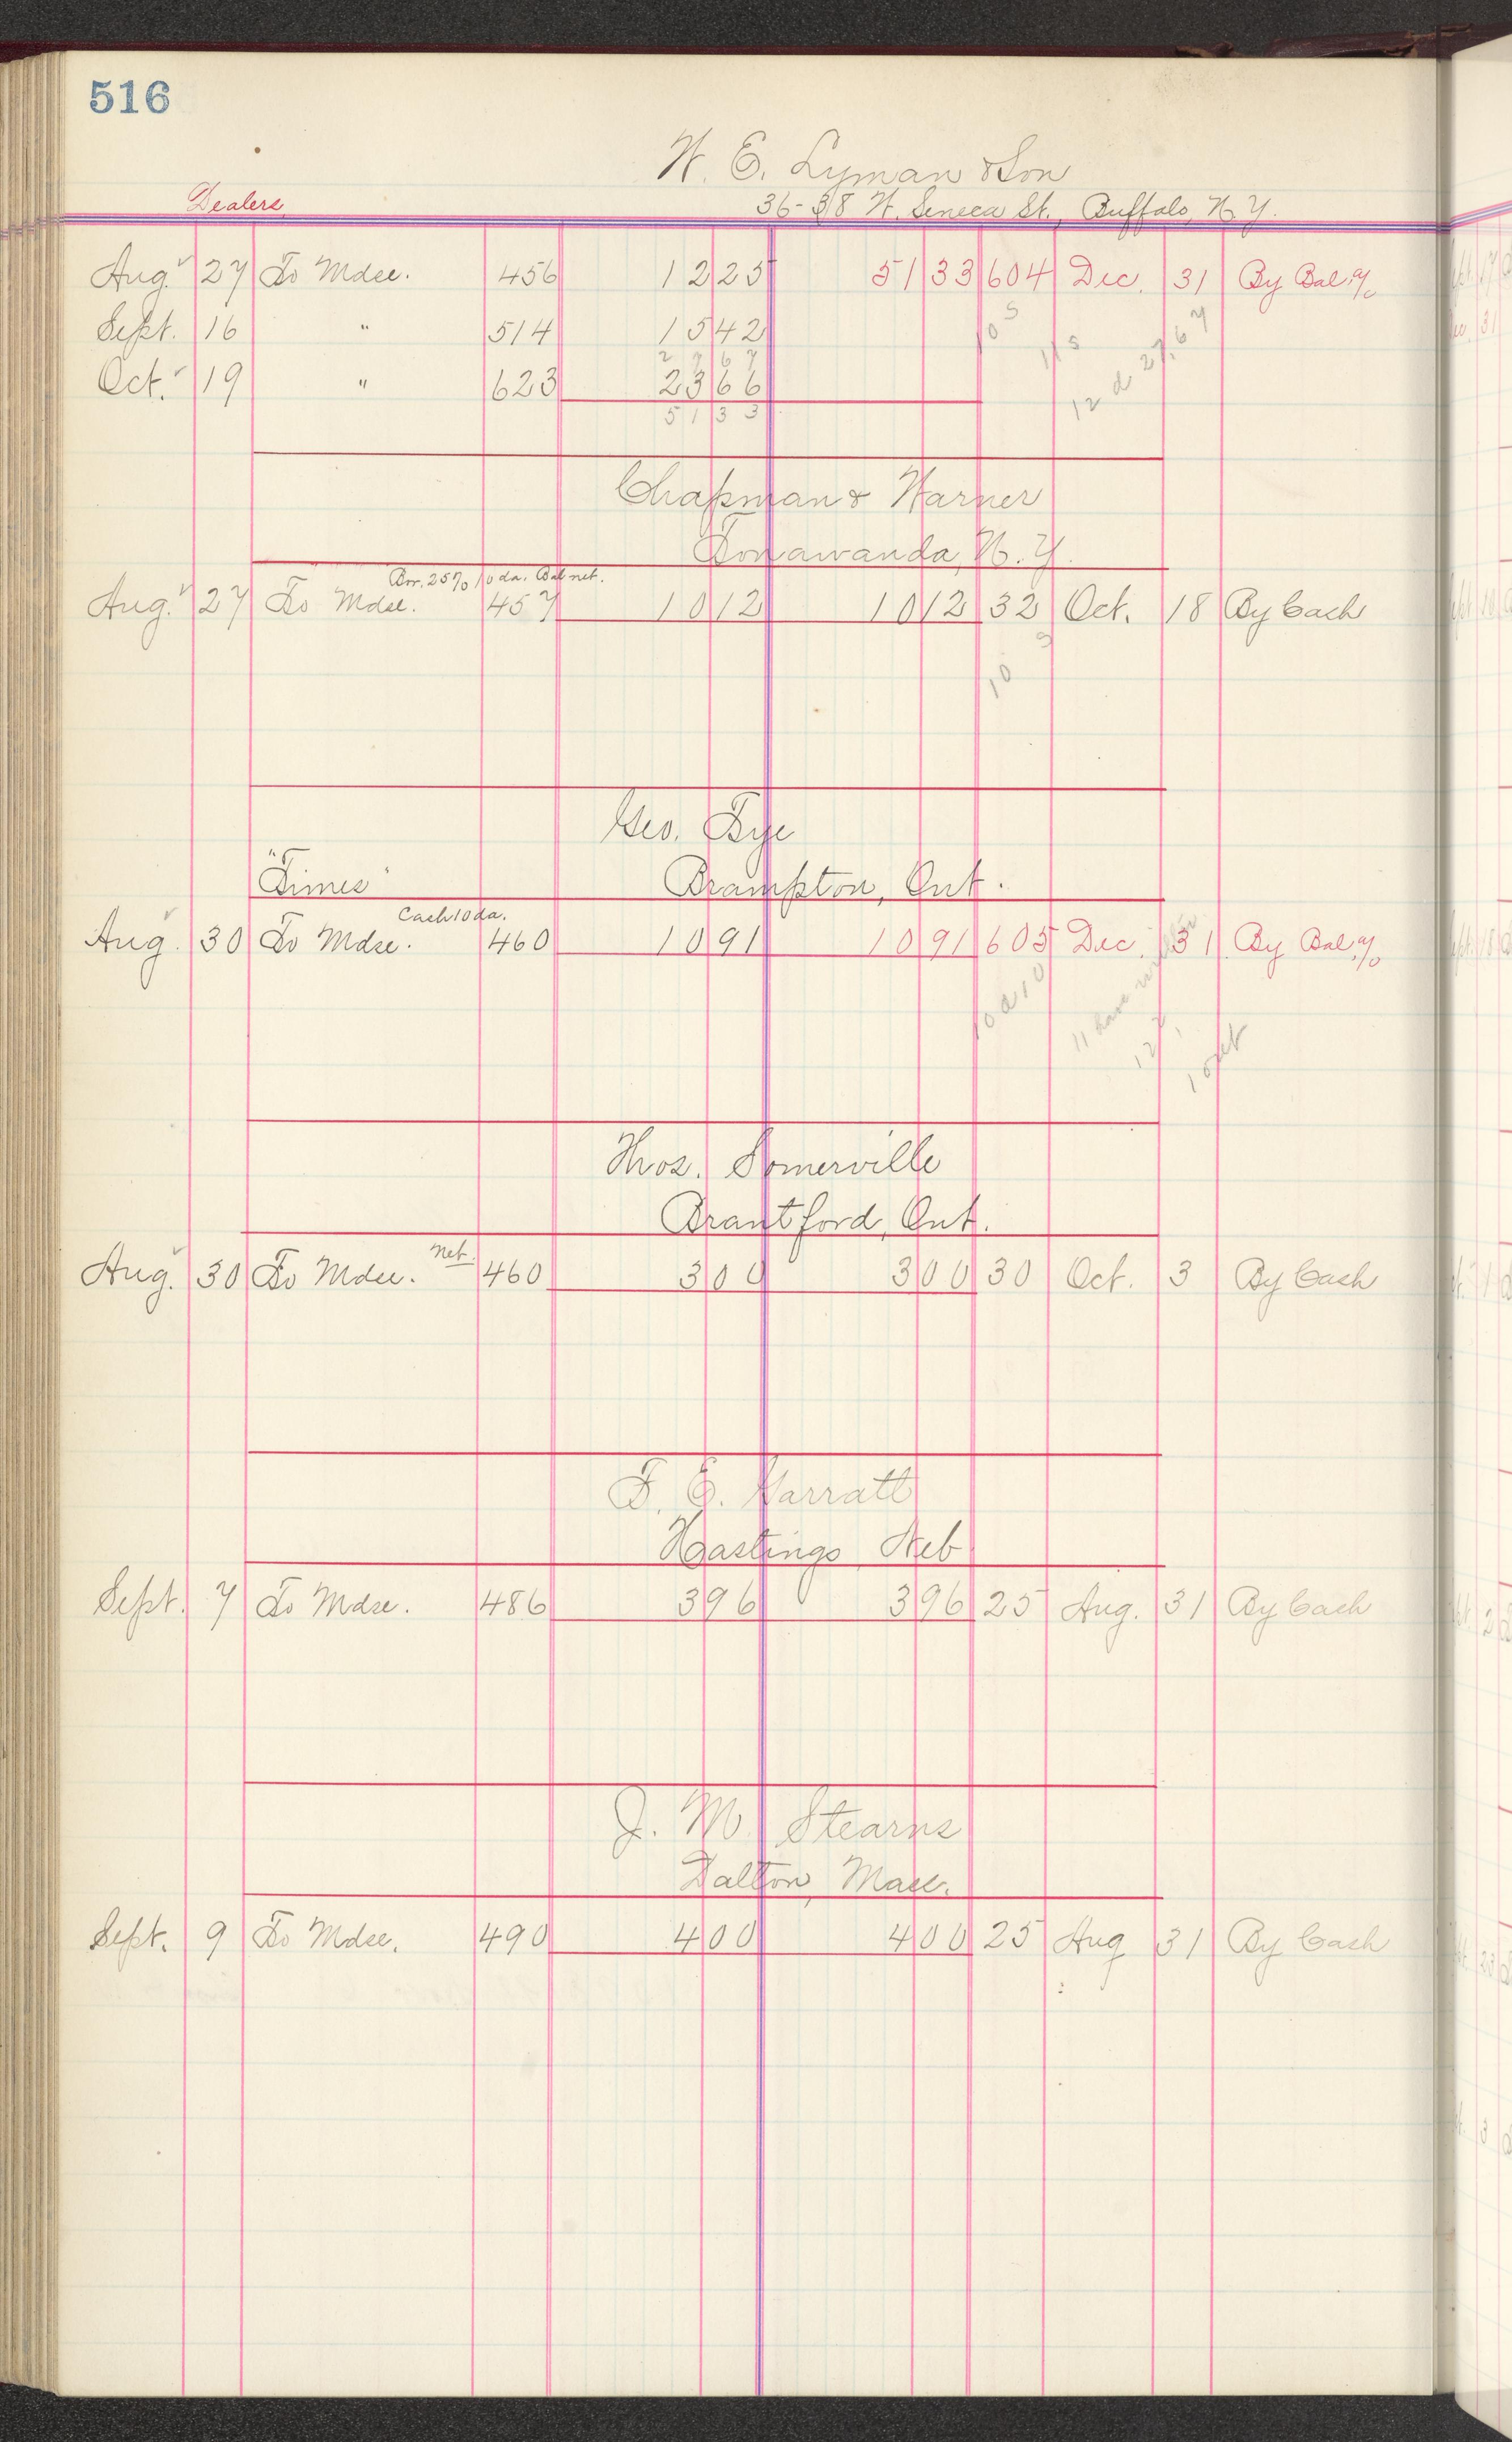 516
W. E. Lyman & Son
Dealers 36-38 W. Seneca St., Buffalo, N.Y.
Aug. 27 To Mdse. 456 12 25 51 33 604 Dec. 31 By Bal. a/c
Sept. 16 " 514 15 42
27 67
Oct. 19 " 623 23 66
51 33
10 S
11 S
12 d 27.67
Chapman & Warner
Tonawanda, N.Y.
25% 10 da. Bal net.
Aug. 27 To Mdse. 457 10 12 10 12 32 Oct. 18 By Cash
10 S
Geo. Tye
"Times" Brampton, Ont.
Cash 10 da.
Aug. 30 To Mdse. 460 10 91 10 91 605 Dec. 31 By Bal. a/c
10 d 10
11 have
Thos. Somerville
Brantford, Ont.
Net
Aug. 30 To Mdse. 460 3 00 3 00 30 Oct. 3 By Cash
F. E. Garratt
Hastings, Neb
Sept. 7 To Mdse. 486 3 96 3 96 25 Aug. 31 By Cash
J. M. Stearns
Dalton, Mass.
Sept. 9 To Mdse. 490 4 00 4 00 25 Aug 31 By Cash